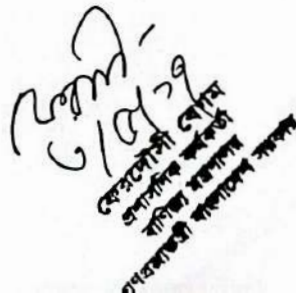 ফেরদৌসী
৩/৫/১৭
ফেরদৌসী বেগম
প্রশাসনিক কর্মকর্তা
বাণিজ্য মন্ত্রণালয়
গণপ্রজাতন্ত্রী বাংলাদেশ সরকার